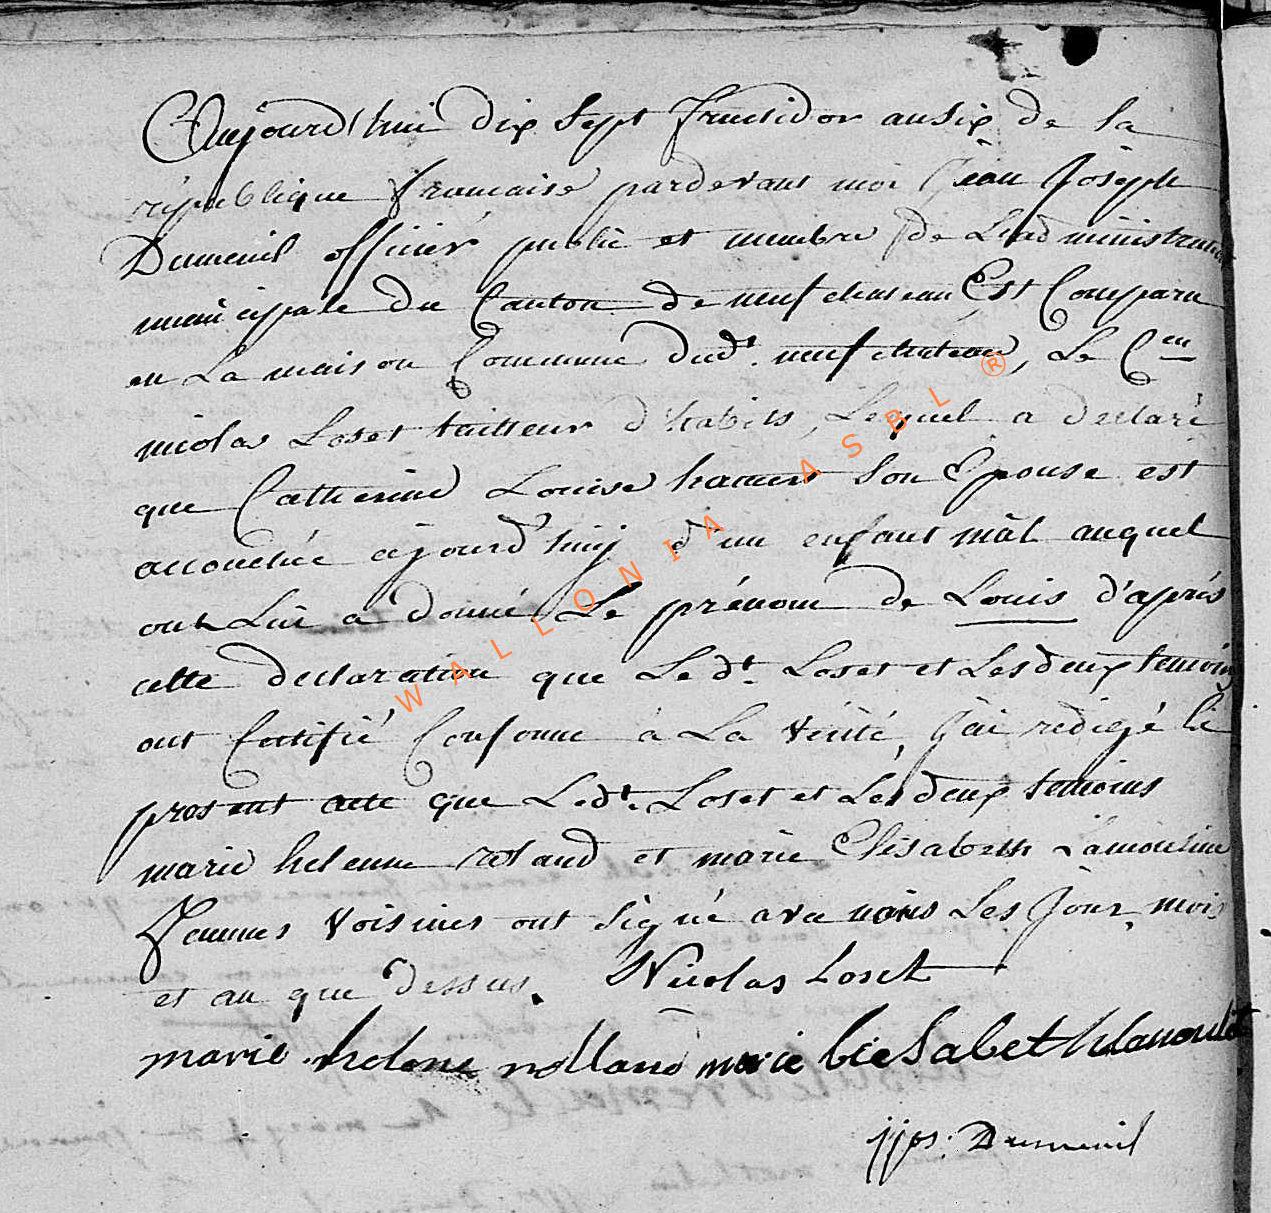 Aujourd'hui dix sept fructidor an six de la
république française pardevant moi Jean Joseph
Dumenil officier public et membre de L'administration
municipale du Canton de neufchateau Est Comparu
en La maison Commune dud.t neufchateau, Le C.en
nicolas Loset tailleur d'habits, Lequel a declaré
que Catherine Louise hamers Son Epouse est
accouchée ajourd'huy d'un enfant mâl auquel
on Lui a donné Le prénom de Louis d'après
cette declaration que Led.t Loset et Les deux temoins
ont Certifié Conforme à La vérité, J'ai redigé le
present acte que Led.t Loset et Les deux temoins
marie helenne roland et marie Elisabeth Lamouline
femmes voisines ont signé avec nous Les Jour, mois
et an que dessus. Nicolas Loset
marie helene rolland marie liesabeth
jjos: Dumenil
WALLONIA ASBL ®